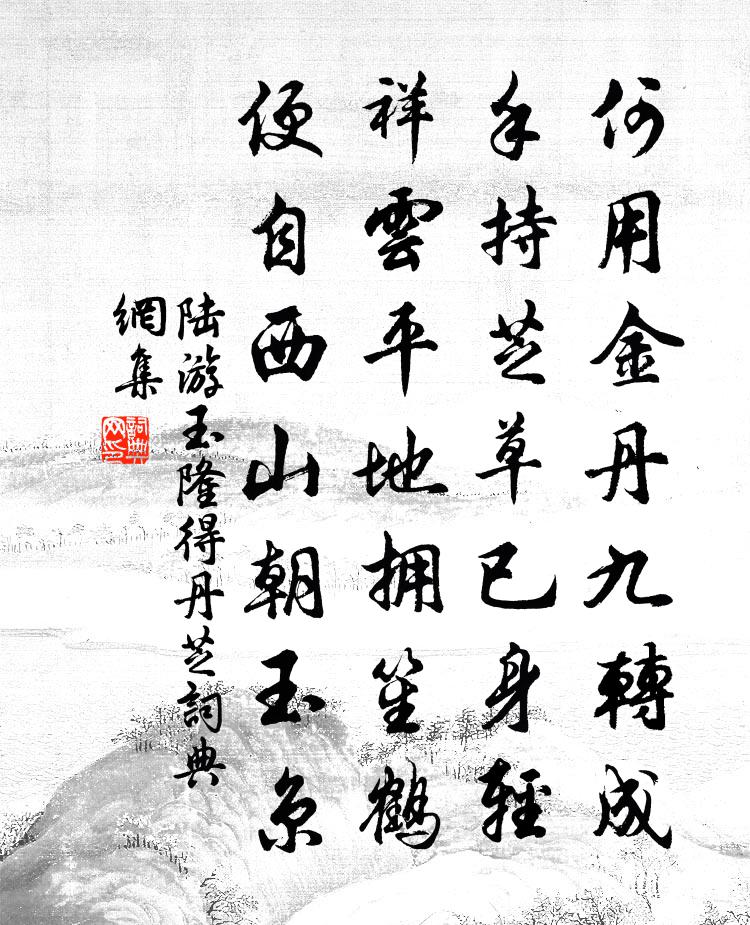 何用金丹九轉成
手持芝草已身輕
祥雲平地拥笙鶴
便自西山朝玉京
陆游玉隆得丹芝詞典
網集
詞典
网印